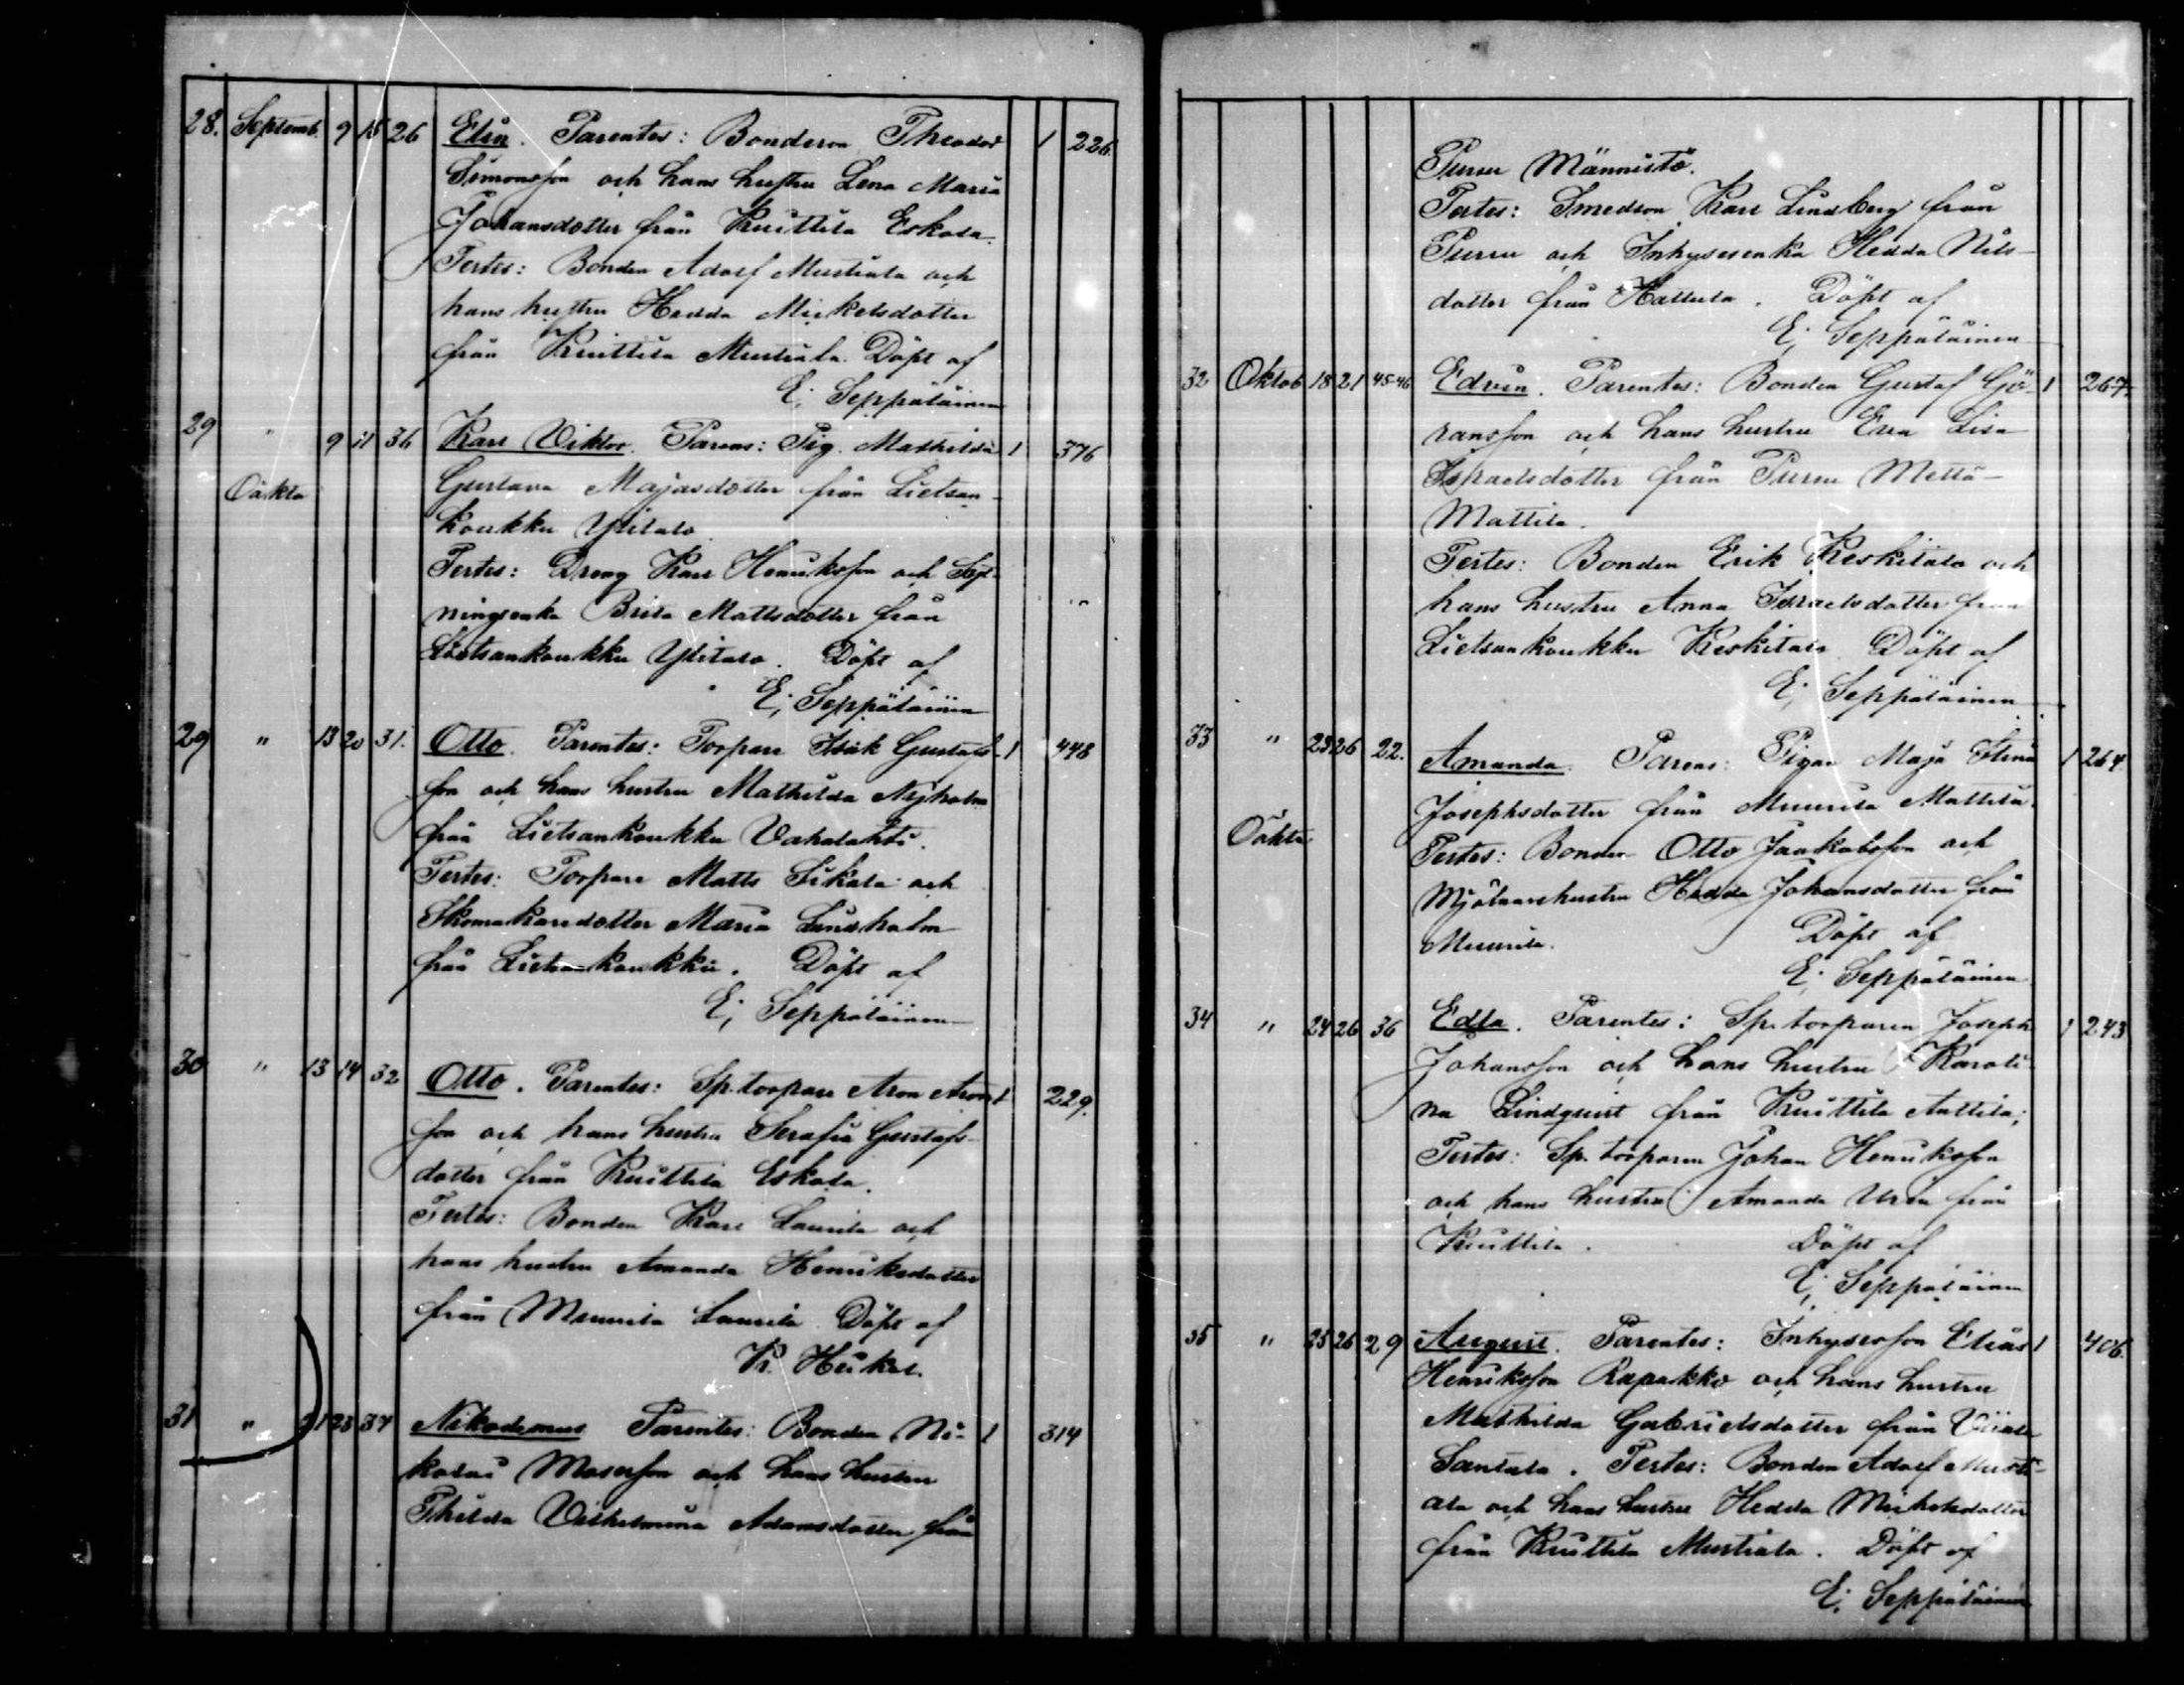 28. Septemb. 9 15 26 Elin. Parentes: Bondeson Theodor 1 226.
Simonsson och hans hustru Lena Maria
Johansdotter från Kuittila Eskola.
Testes: Bonden Adolf Mustiala och
hans hustru Hedda Mickelsdotter
från Kuittila Mustiala. Döpt af
E; Seppäläinen
29 " 9 11 36 Karl Viktor. Parens: Pig. Mathilda 1 376
Oäkta Gustava Majasdotter från Lietsan-
koukku Ylitalo.
Testes: Dreng Karl Henriksson och
Brita Mattsdotter från
Lietsankoukku Ylitalo. Döpt af
E; Seppäläinen
29 " 13 20 31. Otto. Parentes: Torpare Isak Gustafs- 1 448
son och hans hustru Mathilda Nyholm
från Lietsankoukku Vahalahti.
Testes: Torpare Matts Sikala och
Skomakaredotter Maria Lindholm
från Lietsankoukku. Döpt af
E; Seppäläinen
30 " 13 14 32 Otto. Parentes: Sp. torpare Aron Arons- 1 229.
son och hans hustru Serafia Gustafs-
dotter från Kuittila Eskola.
Testes: Bonden Karl Laurila och
hans hustru Amanda Henriksdotter
från Muurila Laurila. Döpt af
K. Heikel.
31 " 21 23 37 Nikodemus Parentes: Bonden Ni- 1 314
kolai Mosesson och hans hustru
Thilda Vilhelmina Adamsdotter från
Pursu Männistö.
Testes: Smedson Karl Lindberg från
Pursu och Inhysesenka Hedda Nils-
dotter från Hattula. Döpt af
E; Seppäläinen
32 Oktob 18 21 45-46 Edvin. Parentes: Bonden Gustaf Gö- 1 267.
ransson och hans hustru Eva Lisa
Israelsdotter från Pursu Mettä-
Mattila.
Testes: Bonden Erik Keskitalo och
hans hustru Anna Israelsdotter från
Lietsankoukku Keskitalo. Döpt af
E; Seppäläinen
33 " 23 26 22. Amanda. Parens: Pigan Maja Stina 1 264.
Josephsdotter från Muurila Mattila.
Oäkta Testes: Bonden Otto Jaakobsson och
Mjölnarehustru Hedda Johansdotter från
Muurila. Döpt af
E; Seppäläinen
34 " 24 26 36 Edla. Parentes: Sp. torparen Joseph 1 243
Johansson och hans hustru Karoli-
na Lindquist från Kuittila Anttila;
Testes: Sp. torparen Johan Henriksson
och hans hustru Amanda från
Kuittila. Döpt af
E; Seppäläinen
35 " 25 26 29 August. Parentes: Inhysesson Elias 1 406.
Henriksson Rapakko och hans hustru
Mathilda Gabrielsdotter från Viiala
Santala. Testes: Bonden Adolf Musti-
ala och hans hustru Hedda Mickelsdotter
från Kuittila Mustiala. Döpt af
E; Seppäläinen